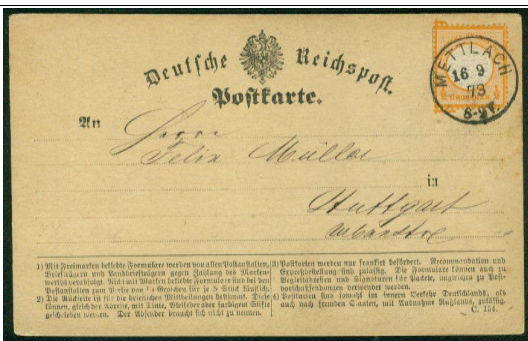 Deutsche Reichspost.
Postkarte.
METTLACH
16 9
73
8-9V.
An
Herrn
Felix Müller
in
Stuttgart
1) Mit Freimarken beklebte Formulare werden von allen Postanstalten,
Briefträgern und Landbriefträgern gegen Zahlung des Marken-
werths verabfolgt. Nicht mit Marken beklebte Formulare sind bei den
Postanstalten zum Preise von ¼ Groschen für je 5 Stück käuflich.
2) Die Rückseite ist für die brieflichen Mittheilungen bestimmt. Diese
können, gleich der Adresse, mit Tinte, Bleifeder oder farbigem Stifte
geschrieben werden. Der Absender braucht sich nicht zu nennen.
3) Postkarten werden nur frankirt befördert. Recommandation und
Expreßbestellung sind zulässig. Die Formulare können auch zu
Begleitadressen und Signaturen für Packete, ungleichen zu Post-
vorschußsendungen verwendet werden.
4) Postkarten sind sowohl im innern Verkehr Deutschlands, als
auch nach fremden Staaten, mit Ausnahme Rußlands, zulässig.
C. 154.